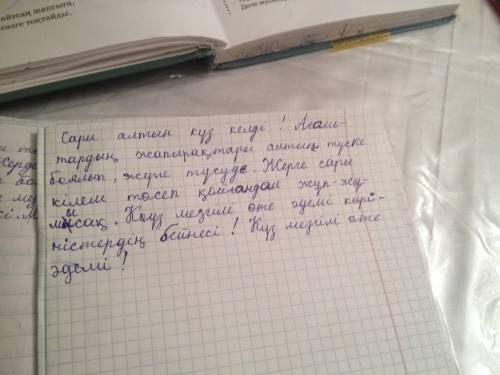 айтсаң жақсыға,
сөзге тоқтайды.
Сары алтын күз келді! Ағаш-
тардың жапырақтары алтын түске
боялып, жерге түсуде. Жерге сары
кілем төсеп қойғандай жұп-жұ-
мысақ. Күз мезгілі өте әдемі көрі-
ністердің бейнесі! Күз мезгілі өте
әдемі!